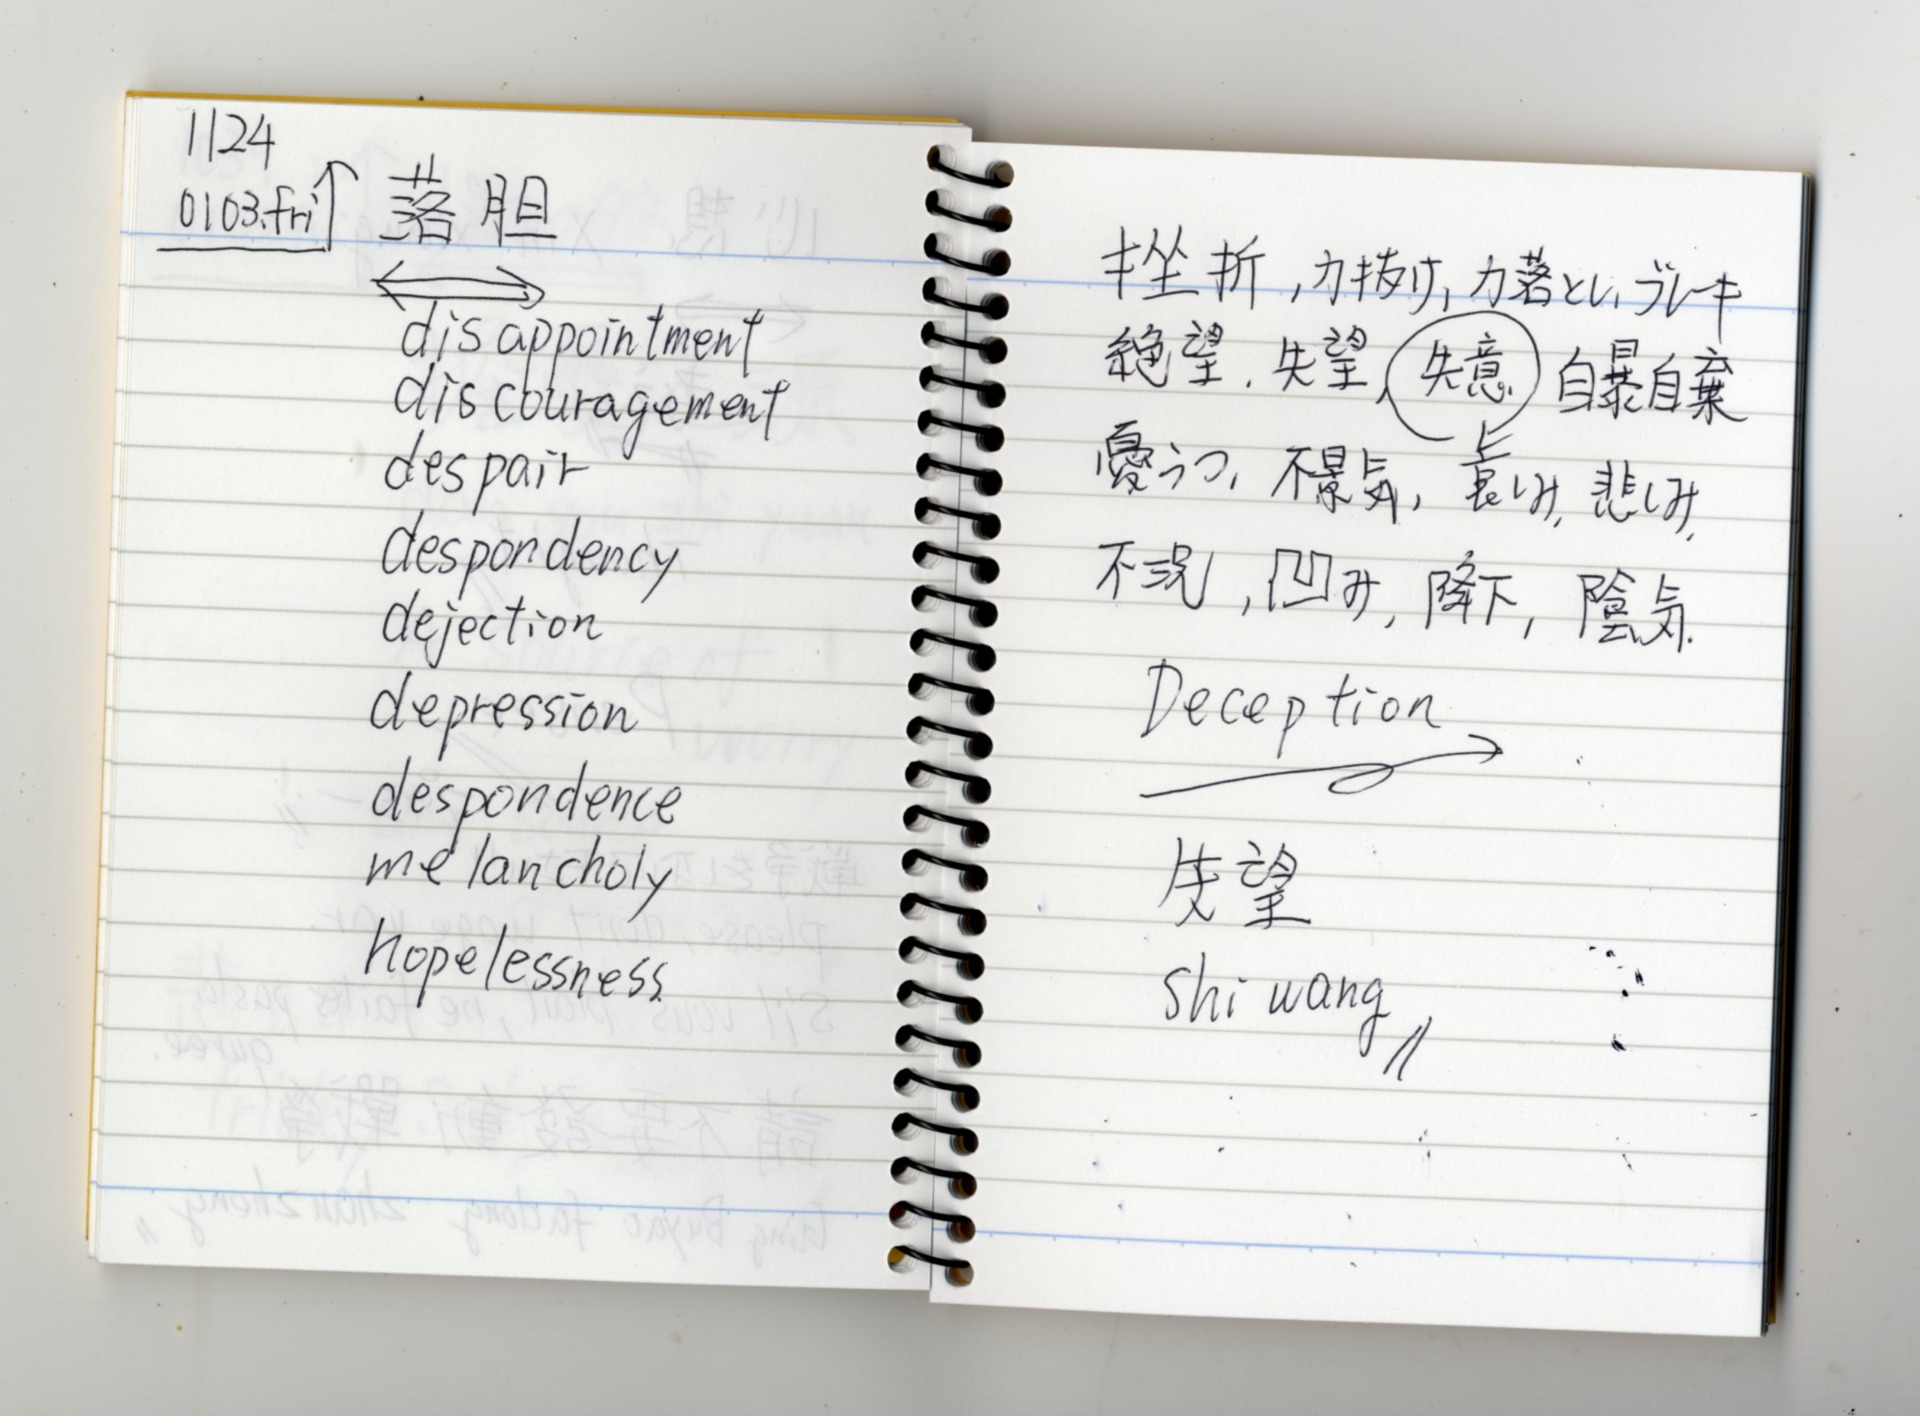 1124
0103.fri 落胆
disappointment
discouragement
despair
despondency
dejection
depression
despondence
melancholy
hopelessness
挫折,力抜け,力落とし,ブレーキ
絶望,失望,失意 自暴自棄
憂うつ,不景気,哀しみ,悲しみ,
不況,凹み,降下,陰気.
Deception
失望
shi wang